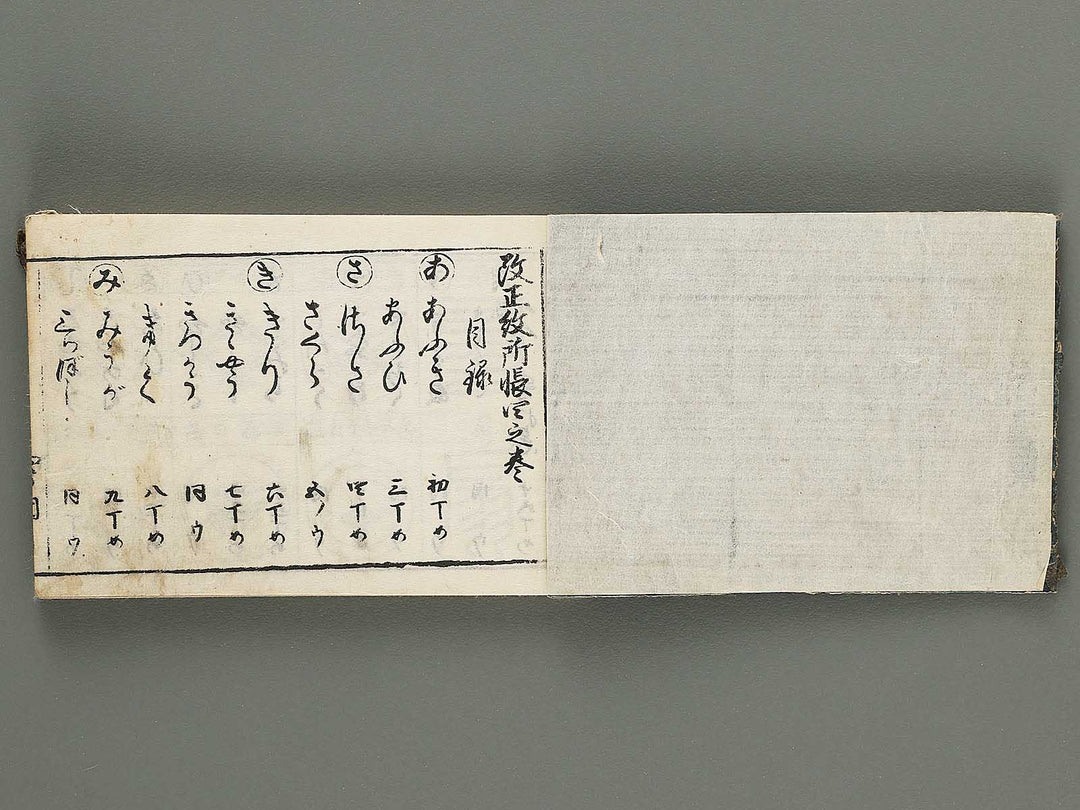 改正紋所帳四之巻
目録
あ あふき 初丁め
あふひ 三丁め
さ 四丁め
さくら 五ノウ
き きり 六丁め
きゝやう 七丁め
きつかう 同ウ
八丁め
み みやうが 九丁め
三つぼし 同丁ウ